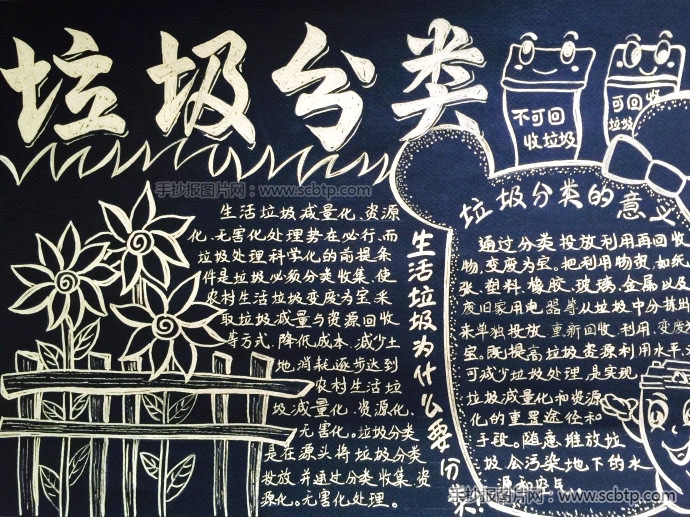 垃圾分类
不可回
收垃圾
可回收
垃圾
手抄报图片网：www.scbtp.com
生活垃圾减量化、资源
化、无害化处理势在必行,而
垃圾处理科学化的前提条
件是垃圾必须分类收集,使
农村生活垃圾变废为宝,采
取垃圾减量与资源回收
等方式,降低成本,减少土
地消耗逐步达到
农村生活垃
圾减量化、资源化、
无害化。垃圾分类
是在源头将垃圾分类
投放并通过分类收集、资
源化。无害化处理。
生活垃圾为什么要分
垃圾分类的意义
通过分类投放利用再回收
物,变废为宝。把利用物资,如纸
张、塑料、橡胶、玻璃、金属以及
废旧家用电器等从垃圾中分拣出
来单独投放,重新回收、利用,变废
宝。既提高垃圾资源利用水平,
可减少垃圾处理,是实现
垃圾减量化和资源
化的重要途径和
手段。随意堆放垃
圾会污染地下的水
源和空气
手抄报图片网：www.scbtp.com